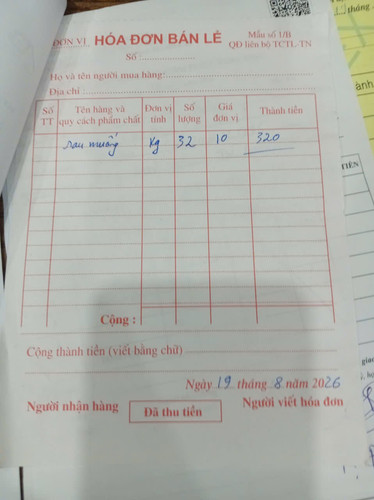 ĐƠN VỊ HÓA ĐƠN BÁN LẺ Mẫu số 1/B
QĐ liên bộ TCTL-TN
Số
Họ và tên người mua hàng:
Địa chỉ
Số TT Tên hàng và quy cách phẩm chất Đơn vị tính Số lượng Giá đơn vị Thành tiền
rau muống Kg 32 10 320
Cộng :
Cộng thành tiền (viết bằng chữ)
Ngày 19 tháng 8 năm 2026
Người nhận hàng Đã thu tiền Người viết hóa đơn
tháng
TIỀN